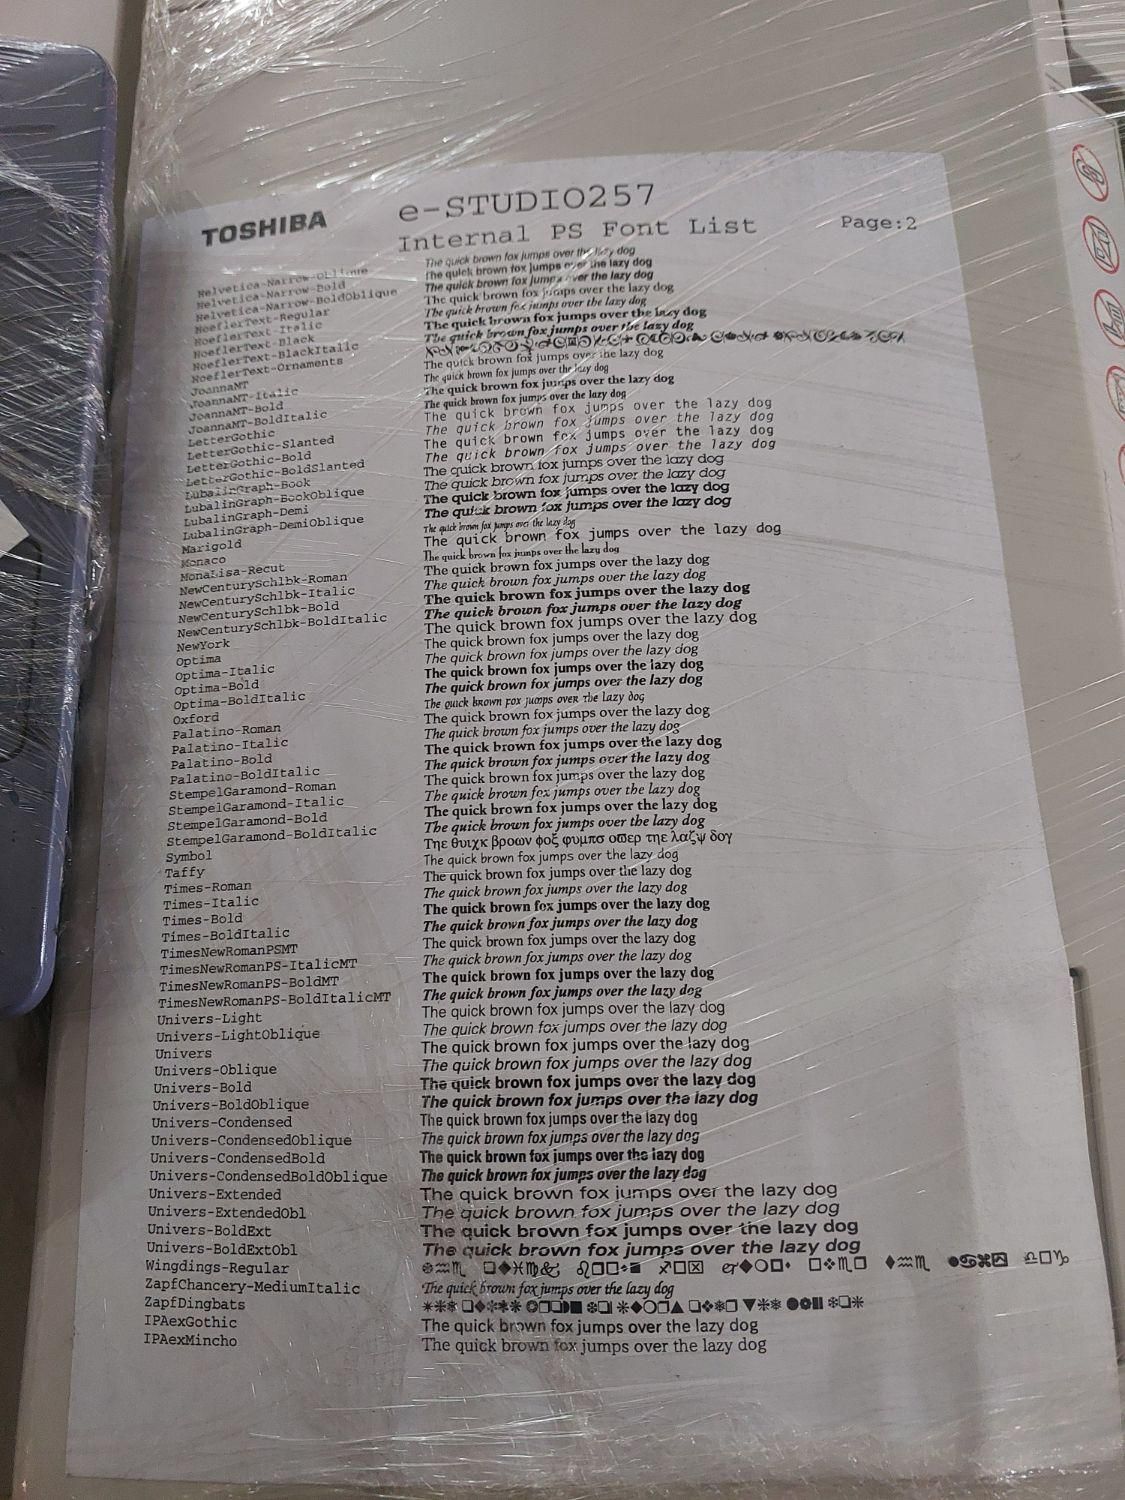 TOSHIBA
e-STUDIO257
Internal PS Font List
Page:2
Helvetica-Narrow-Oblique The quick brown fox jumps over the lazy dog
Helvetica-Narrow-Bold The quick brown fox jumps over the lazy dog
Helvetica-Narrow-BoldOblique The quick brown fox jumps over the lazy dog
HoeflerText-Regular The quick brown fox jumps over the lazy dog
HoeflerText-Italic The quick brown fox jumps over the lazy dog
HoeflerText-Black The quick brown fox jumps over the lazy dog
HoeflerText-BlackItalic The quick brown fox jumps over the lazy dog
HoeflerText-Ornaments
JoannaMT The quick brown fox jumps over the lazy dog
JoannaMT-Italic The quick brown fox jumps over the lazy dog
JoannaMT-Bold The quick brown fox jumps over the lazy dog
JoannaMT-BoldItalic The quick brown fox jumps over the lazy dog
LetterGothic The quick brown fox jumps over the lazy dog
LetterGothic-Slanted The quick brown fox jumps over the lazy dog
LetterGothic-Bold The quick brown fox jumps over the lazy dog
LetterGothic-BoldSlanted The quick brown fox jumps over the lazy dog
LubalinGraph-Book The quick brown fox jumps over the lazy dog
LubalinGraph-BookOblique The quick brown fox jumps over the lazy dog
LubalinGraph-Demi The quick brown fox jumps over the lazy dog
LubalinGraph-DemiOblique The quick brown fox jumps over the lazy dog
Marigold The quick brown fox jumps over the lazy dog
Monaco The quick brown fox jumps over the lazy dog
MonaLisa-Recut The quick brown fox jumps over the lazy dog
NewCenturySchlbk-Roman The quick brown fox jumps over the lazy dog
NewCenturySchlbk-Italic The quick brown fox jumps over the lazy dog
NewCenturySchlbk-Bold The quick brown fox jumps over the lazy dog
NewCenturySchlbk-BoldItalic The quick brown fox jumps over the lazy dog
NewYork The quick brown fox jumps over the lazy dog
Optima The quick brown fox jumps over the lazy dog
Optima-Italic The quick brown fox jumps over the lazy dog
Optima-Bold The quick brown fox jumps over the lazy dog
Optima-BoldItalic The quick brown fox jumps over the lazy dog
Oxford The quick brown fox jumps over the lazy dog
Palatino-Roman The quick brown fox jumps over the lazy dog
Palatino-Italic The quick brown fox jumps over the lazy dog
Palatino-Bold The quick brown fox jumps over the lazy dog
Palatino-BoldItalic The quick brown fox jumps over the lazy dog
StempelGaramond-Roman The quick brown fox jumps over the lazy dog
StempelGaramond-Italic The quick brown fox jumps over the lazy dog
StempelGaramond-Bold The quick brown fox jumps over the lazy dog
StempelGaramond-BoldItalic The quick brown fox jumps over the lazy dog
Symbol Τηε θυιχκ βροων φοξ φυμπσ οϖερ τηε λαζψ δογ
Taffy The quick brown fox jumps over the lazy dog
Times-Roman The quick brown fox jumps over the lazy dog
Times-Italic The quick brown fox jumps over the lazy dog
Times-Bold The quick brown fox jumps over the lazy dog
Times-BoldItalic The quick brown fox jumps over the lazy dog
TimesNewRomanPSMT The quick brown fox jumps over the lazy dog
TimesNewRomanPS-ItalicMT The quick brown fox jumps over the lazy dog
TimesNewRomanPS-BoldMT The quick brown fox jumps over the lazy dog
TimesNewRomanPS-BoldItalicMT The quick brown fox jumps over the lazy dog
Univers-Light The quick brown fox jumps over the lazy dog
Univers-LightOblique The quick brown fox jumps over the lazy dog
Univers The quick brown fox jumps over the lazy dog
Univers-Oblique The quick brown fox jumps over the lazy dog
Univers-Bold The quick brown fox jumps over the lazy dog
Univers-BoldOblique The quick brown fox jumps over the lazy dog
Univers-Condensed The quick brown fox jumps over the lazy dog
Univers-CondensedOblique The quick brown fox jumps over the lazy dog
Univers-CondensedBold The quick brown fox jumps over the lazy dog
Univers-CondensedBoldOblique The quick brown fox jumps over the lazy dog
Univers-Extended The quick brown fox jumps over the lazy dog
Univers-ExtendedObl The quick brown fox jumps over the lazy dog
Univers-BoldExt The quick brown fox jumps over the lazy dog
Univers-BoldExtObl The quick brown fox jumps over the lazy dog
Wingdings-Regular
ZapfChancery-MediumItalic The quick brown fox jumps over the lazy dog
ZapfDingbats
IPAexGothic The quick brown fox jumps over the lazy dog
IPAexMincho The quick brown fox jumps over the lazy dog